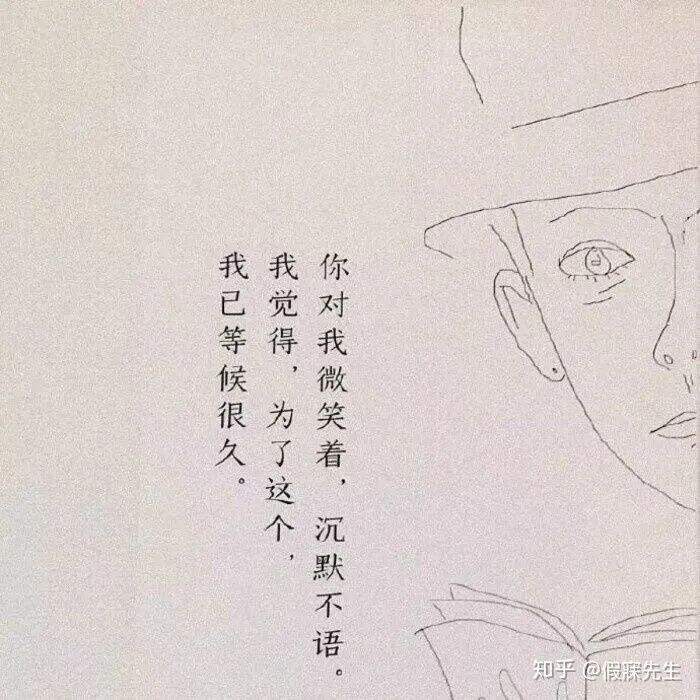 你对我微笑着，沉默不语。
我觉得，为了这个，
我已等候很久。
知乎 @假寐先生